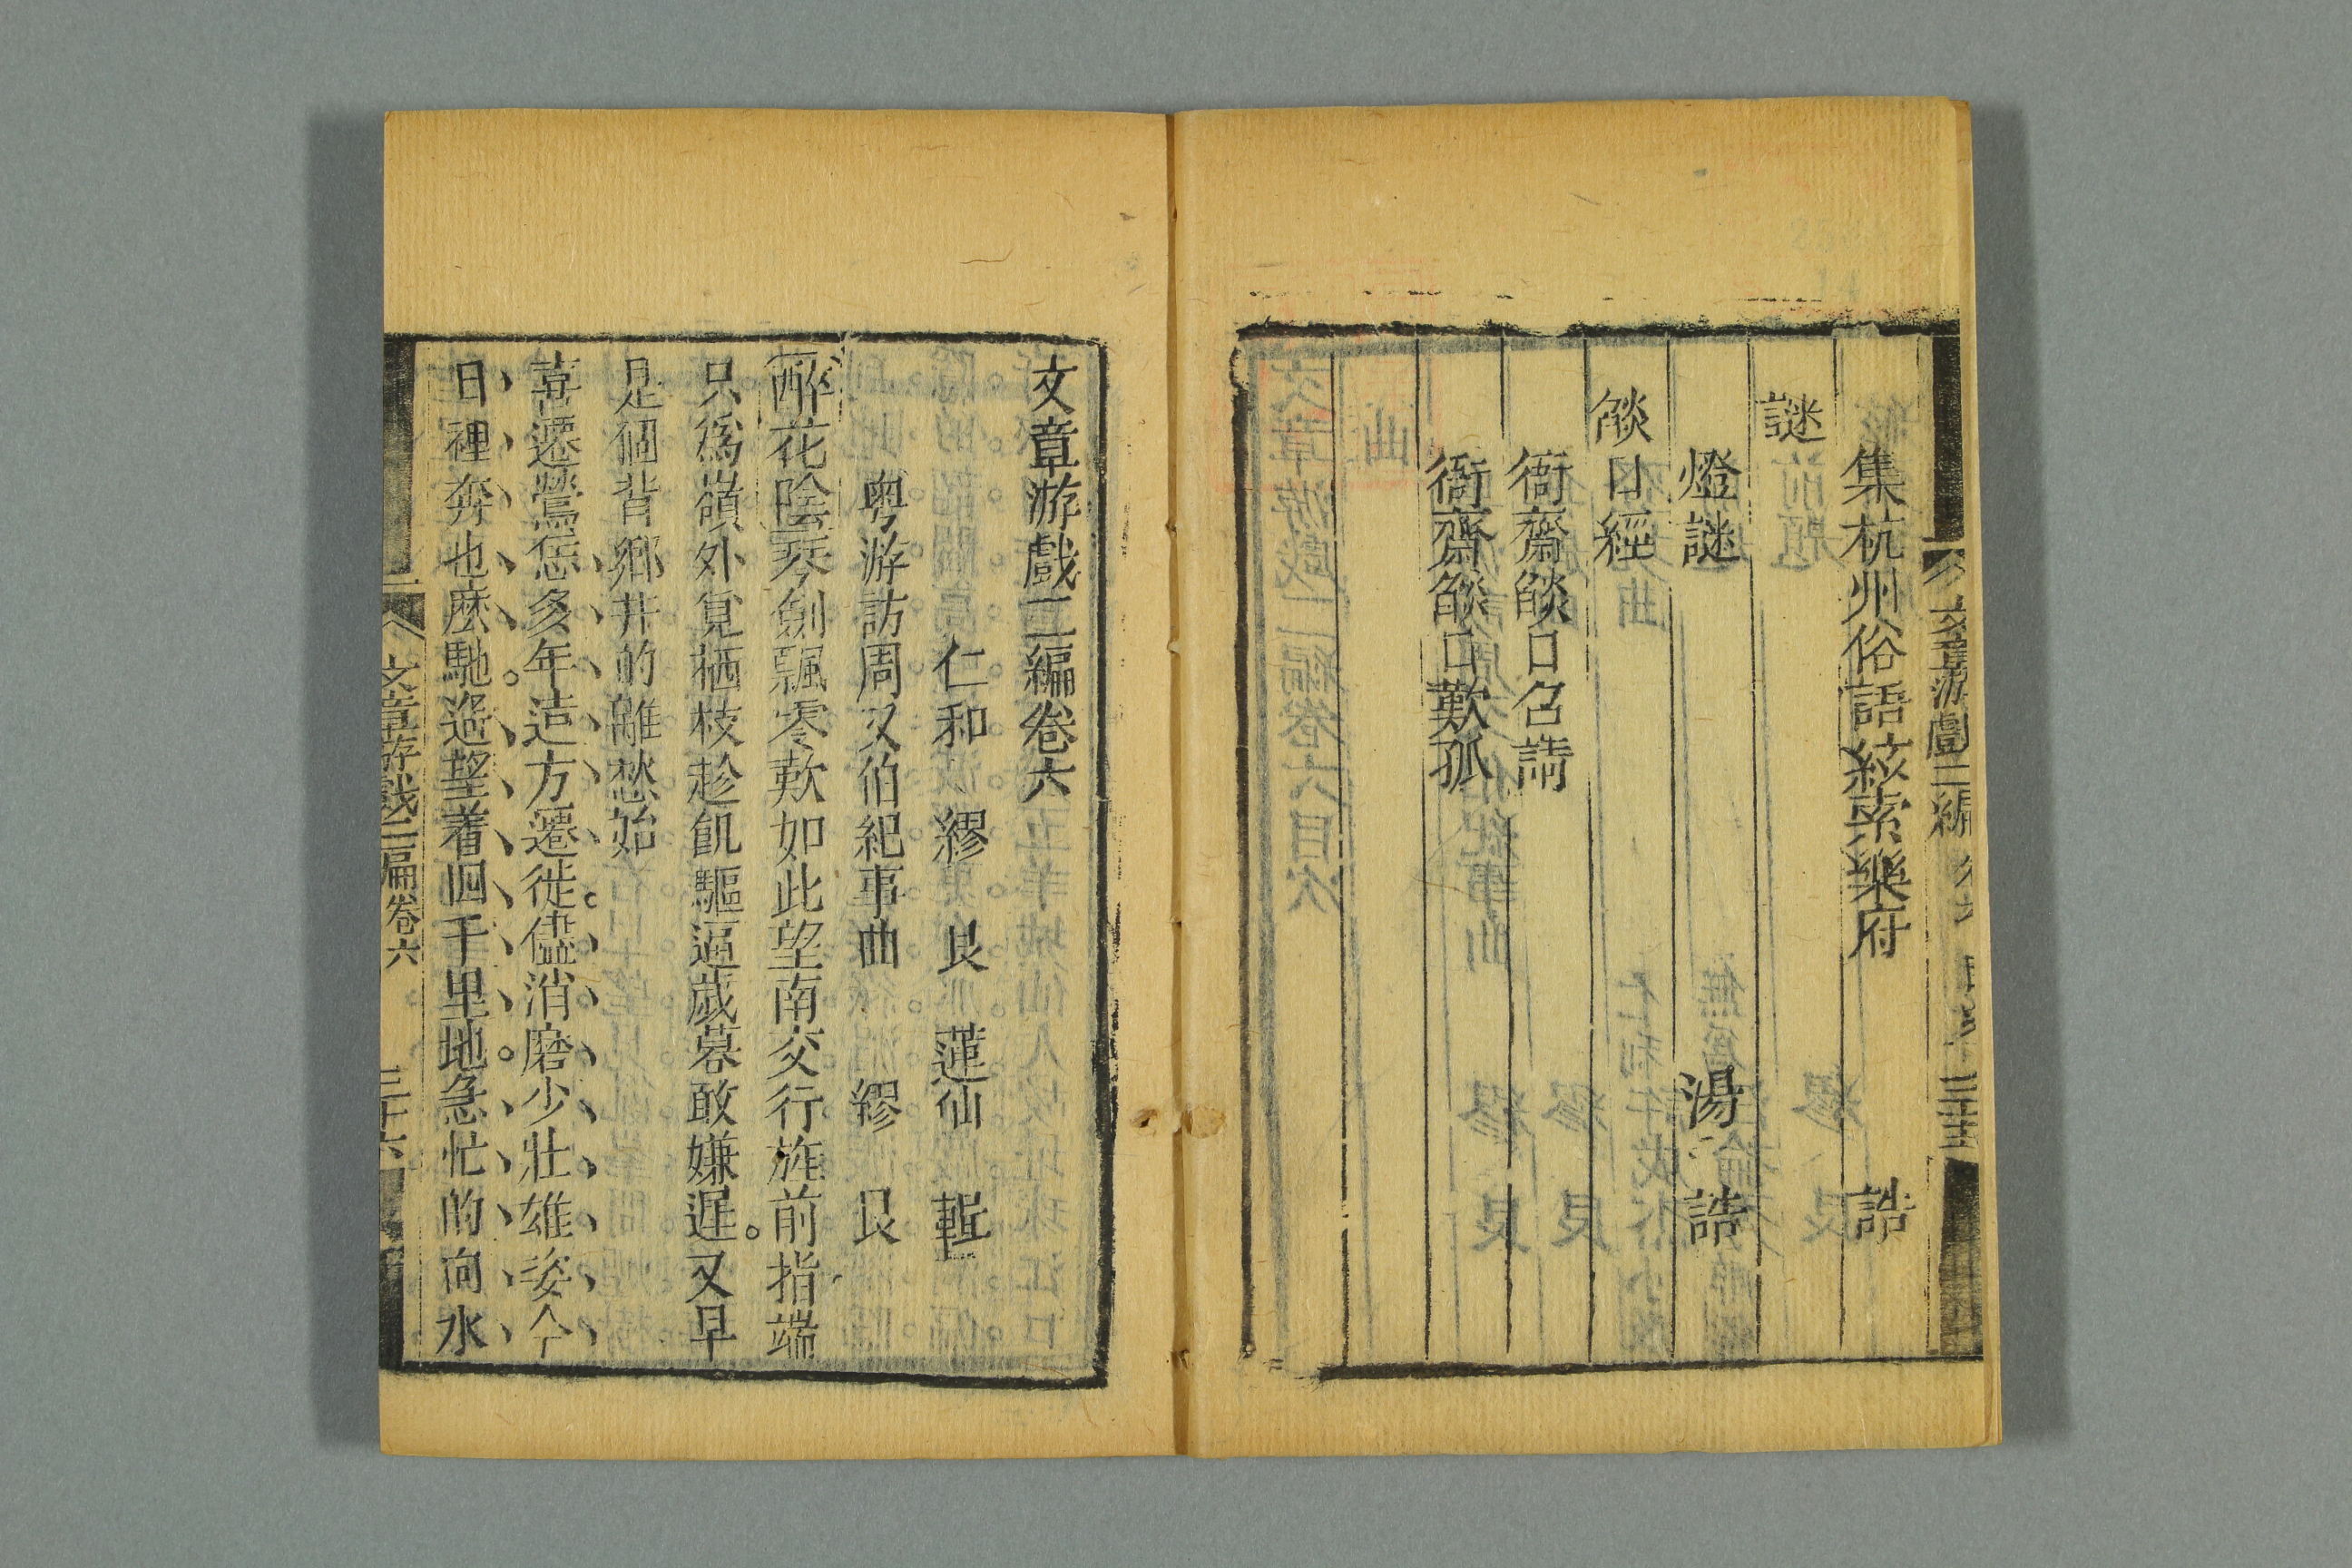 文章游戲二編 卷六 目次 三十五
集杭州俗語絃索樂府 誥
謎
燈謎 湯誥
燄口經
衙齋燄口召請
衙齋燄口歎孤
文章游戲二編卷六
仁和 繆艮 蓮仙 輯
粵游訪周又伯紀事曲 繆艮
醉花陰琴劍飄零歎如此望南交行旌前指端
只爲嶺外覓栖枝趁飢驅逼歲暮敢嫌遲。又早
是個背鄉井的離愁始
喜遷鶯恁多年造方遷徙。儘消磨少壯雄姿今
日裡奔也麽馳。遙望着四千里地。急忙的向水
文章游戲二編卷六 三十六